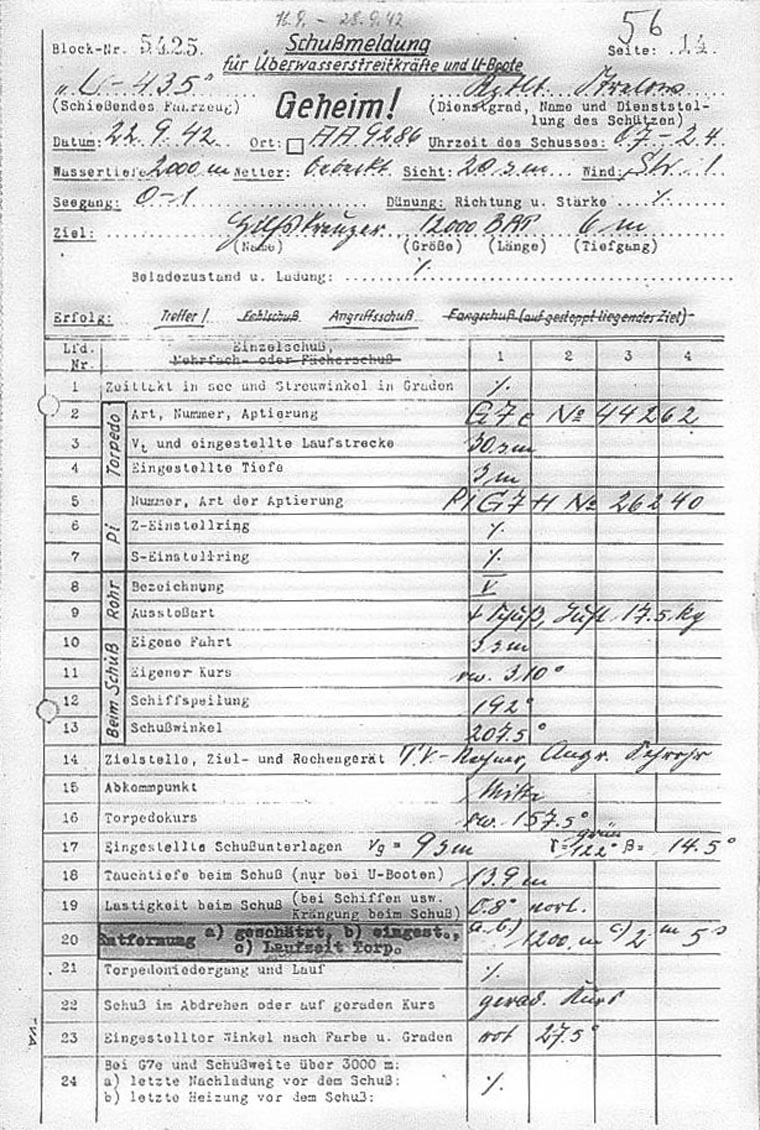 16.9. - 28.9.42
56
Block-Nr. 5425. Schußmeldung Seite: .14.
für Überwasserstreitkräfte und U-Boote
"U-435" Kptlt Strelow
(Schießendes Fahrzeug) Geheim! (Dienstgrad, Name und Dienststel-
lung des Schützen)
Datum: 22.9.42 Ort: AA 9286 Uhrzeit des Schusses: 07-24
Wassertiefe 2000 m Wetter: bedeckt Sicht: 20 sm Wind: SW. 1
Seegang: 0-1 Dünung: Richtung u. Stärke ./.
Ziel: Hilfskreuzer 12000 BRT 6 m
(Name) (Größe) (Länge) (Tiefgang)
Beladezustand u. Ladung: ./.
Erfolg: Treffer! Fehlschuß Angriffsschuß Fangschuß (auf gestoppt liegendes Ziel)
Lfd. Nr. Einzelschuß, Mehrfach- oder Fächerschuß 1 2 3 4
1 Zeittakt in sec und Streuwinkel in Graden ./.
Torpedo
2 Art, Nummer, Aptierung G7e No 44262
3 Vt und eingestellte Laufstrecke 30 sm
4 Eingestellte Tiefe 3 m
Pi
5 Nummer, Art der Aptierung Pi G7H No 26240
6 Z-Einstellring ./.
7 S-Einstellring ./.
Rohr
8 Bezeichnung V
9 Ausstoßart Luft 17.5 kg
Beim Schuß
10 Eigene Fahrt 3 sm
11 Eigener Kurs rw. 310°
12 Schiffspeilung 192°
13 Schußwinkel 207.5°
14 Zielstelle, Ziel- und Rechengerät T.V.-Rechner, Angr. Sehrohr
15 Abkommpunkt Mitte
16 Torpedokurs rw. 157.5°
17 Eingestellte Schußunterlagen vg = 9 sm γ = grün 122° β = 14.5°
18 Tauchtiefe beim Schuß (nur bei U-Booten) 13.9 m
19 Lastigkeit beim Schuß (bei Schiffen usw. Krängung beim Schuß) 0.8° vorl.
20 Entfernung a) geschätzt, b) eingest., c) Laufzeit Torp. a.b.) 1200 m c) 2 m 5 s
21 Torpedoniedergang und Lauf ./.
22 Schuß im Abdrehen oder auf geraden Kurs gerad. Kurs
23 Eingestellter Winkel nach Farbe u. Graden rot 27.5°
24 Bei G7e und Schußweite über 3000 m:
a) letzte Nachladung vor dem Schuß: ./.
b) letzte Heizung vor dem Schuß: